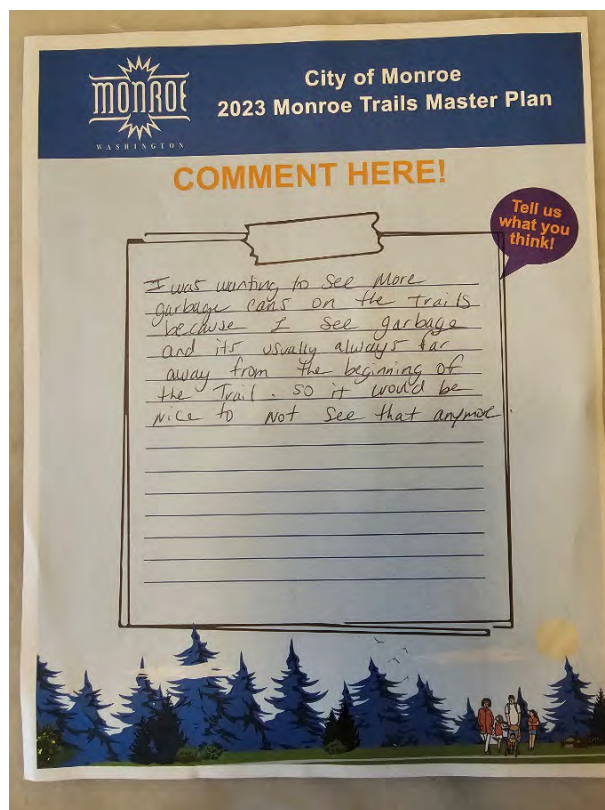 MONROE
WASHINGTON
City of Monroe
2023 Monroe Trails Master Plan
COMMENT HERE!
Tell us
what you
think!
I was wanting to see More
garbage cans on the trails
because I see garbage
and its usually always far
away from the beginning of
the Trail. so it would be
Nice to Not see that anymore.